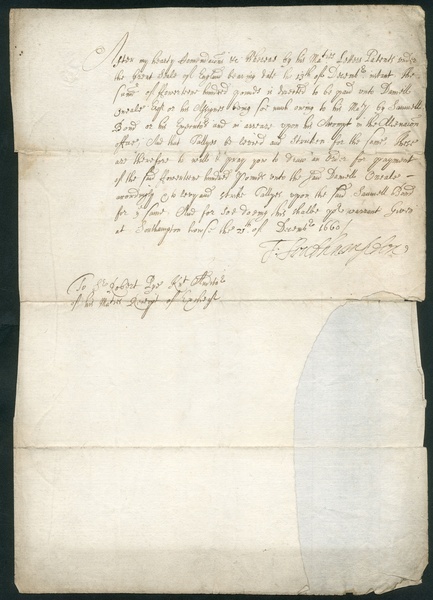 After my hearty Comendacions &c Whereas by his Maties Letters Patents under
the Great Seale of England bearing date the 13th of Decembr instant the
summe of fowerteene hundred pounds is directed to be paid unto Daniell
Treale Esqr or his Assignes being soe much oweing to his Maty by Samuell
Bond or his Executors and in arreare upon his Accompt in the Alienacion
Office And that Tallyes be levied and stricken for the same These
are therefore to will & pray you to draw an Order for payment
of the said fowerteene hundred Pounds unto the said Daniell
accordingly & to levy and strike Tallyes upon the said Samuell Bond
for ye same And for soe doeing this shalbe yor warrant Given
at Southampton house the of Decembr 1660
T: Southampton
To Sr Robert Pye Knt Auditor
of his Maties Receipt of Excheqr